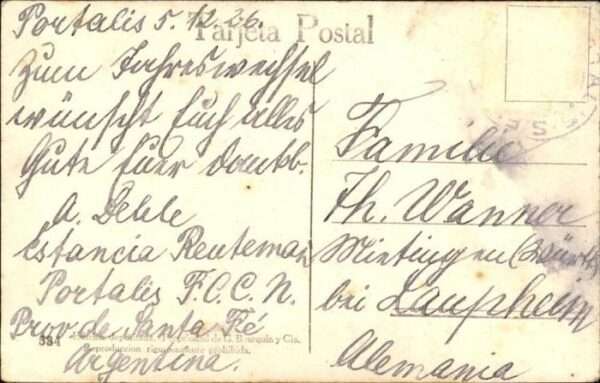 Portalis 5.12.26.
Tarjeta Postal
Zum Jahreswechsel
wünscht Euch alles
Gute Euer dankb.
A. Dehle
Estancia Reuteman
Portalis F.C.C.N.
Prov. de Santa Fé
Argentina.
334
Propiedad de G. Bourquin y Cia.
Reproduccion rigurosamente prohibida.
Familie
Th. Wanner
Mietingen (Württ.
bei Laupheim
Alemania